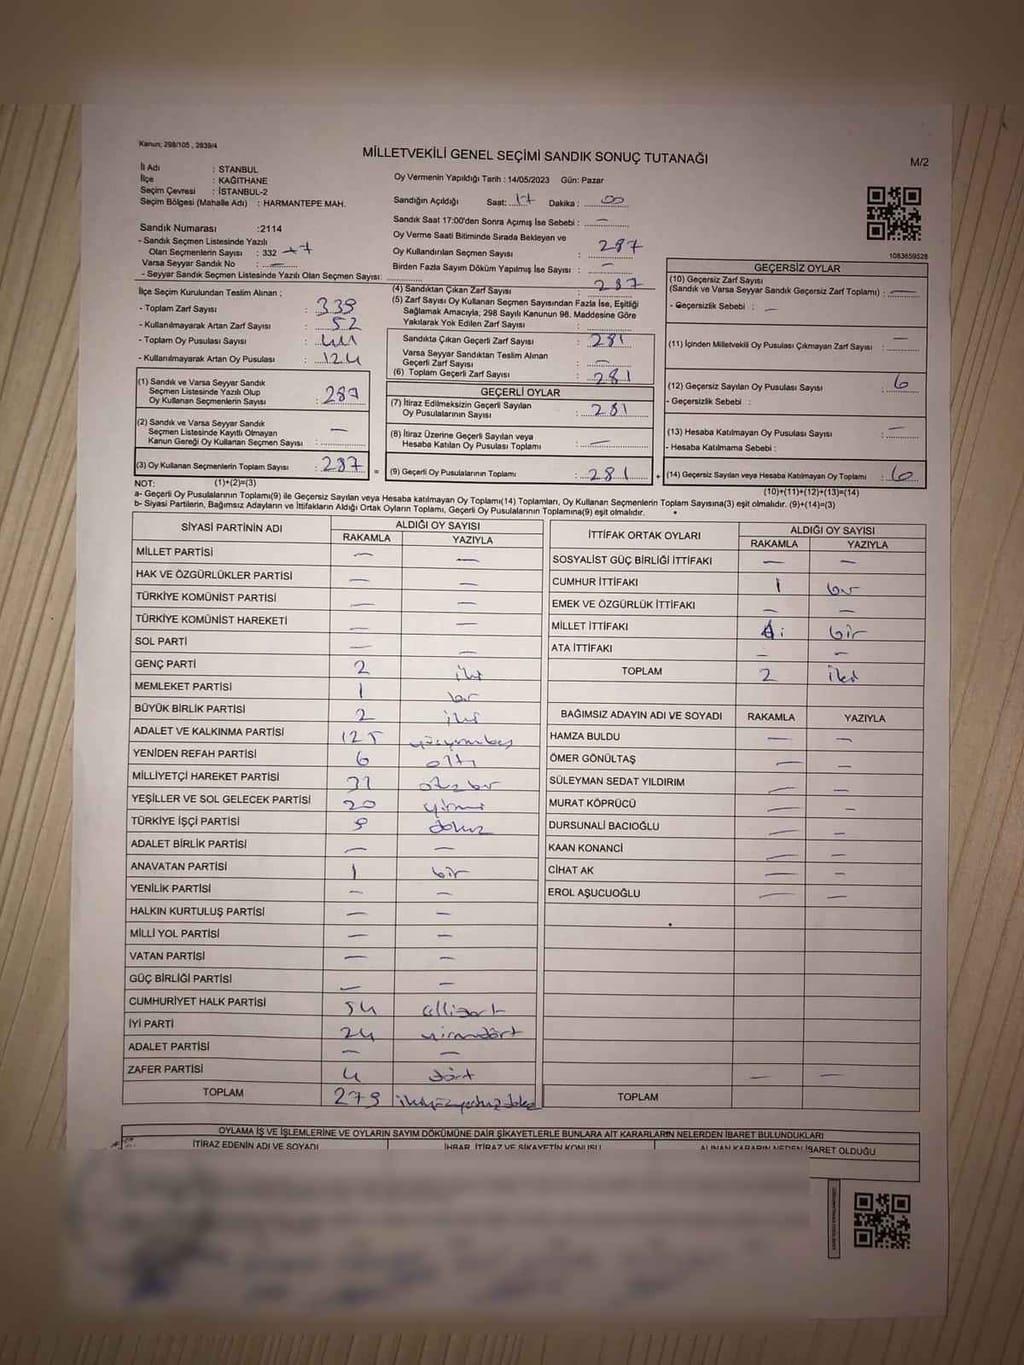 Kanun; 298/105 , 2839/4
MİLLETVEKİLİ GENEL SEÇİMİ SANDIK SONUÇ TUTANAĞI
M/2
İl Adı : STANBUL
İlçe : KAĞITHANE
Seçim Çevresi : İSTANBUL-2
Seçim Bölgesi (Mahalle Adı) : HARMANTEPE MAH.
Oy Vermenin Yapıldığı Tarih : 14/05/2023 Gün: Pazar
Sandığın Açıldığı Saat: 17 Dakika : 00
Sandık Saat 17:00'den Sonra Açımış İse Sebebi : —
Oy Verme Saati Bitiminde Sırada Bekleyen ve
Oy Kullandırılan Seçmen Sayısı : 287
Birden Fazla Sayım Döküm Yapılmış İse Sayısı : —
Sandık Numarası :2114
- Sandık Seçmen Listesinde Yazılı
Olan Seçmenlerin Sayısı : 332 +7
Varsa Seyyar Sandık No : —
- Seyyar Sandık Seçmen Listesinde Yazılı Olan Seçmen Sayısı:
1083659528
İlçe Seçim Kurulundan Teslim Alınan ;
- Toplam Zarf Sayısı : 339
- Kullanılmayarak Artan Zarf Sayısı : 52
- Toplam Oy Pusulası Sayısı : 411
- Kullanılmayarak Artan Oy Pusulası : 124
(1) Sandık ve Varsa Seyyar Sandık
Seçmen Listesinde Yazılı Olup
Oy Kullanan Seçmenlerin Sayısı : 287
(2) Sandık ve Varsa Seyyar Sandık
Seçmen Listesinde Kayıtlı Olmayan
Kanun Gereği Oy Kullanan Seçmen Sayısı : —
(3) Oy Kullanan Seçmenlerin Toplam Sayısı : 287 =
(4) Sandıktan Çıkan Zarf Sayısı : 287
(5) Zarf Sayısı Oy Kullanan Seçmen Sayısından Fazla İse, Eşitliği
Sağlamak Amacıyla, 298 Sayılı Kanunun 98. Maddesine Göre
Yakılarak Yok Edilen Zarf Sayısı :
Sandıkta Çıkan Geçerli Zarf Sayısı : 281
Varsa Seyyar Sandıktan Teslim Alınan
Geçerli Zarf Sayısı : —
(6) Toplam Geçerli Zarf Sayısı : 281
GEÇERLİ OYLAR
(7) İtiraz Edilmeksizin Geçerli Sayılan
Oy Pusulalarının Sayısı : 281
(8) İtiraz Üzerine Geçerli Sayılan veya
Hesaba Katılan Oy Pusulası Toplamı : —
(9) Geçerli Oy Pusulalarının Toplamı : 281 +
GEÇERSİZ OYLAR
(10) Geçersiz Zarf Sayısı
(Sandık ve Varsa Seyyar Sandık Geçersiz Zarf Toplamı) : —
- Geçersizlik Sebebi : —
(11) İçinden Milletvekili Oy Pusulası Çıkmayan Zarf Sayısı : —
(12) Geçersiz Sayılan Oy Pusulası Sayısı : 6
- Geçersizlik Sebebi :
(13) Hesaba Katılmayan Oy Pusulası Sayısı : —
- Hesaba Katılmama Sebebi :
(14) Geçersiz Sayılan veya Hesaba Katılmayan Oy Toplamı : 6
NOT: (1)+(2)=(3) (10)+(11)+(12)+(13)=(14)
a- Geçerli Oy Pusulalarının Toplamı(9) ile Geçersiz Sayılan veya Hesaba katılmayan Oy Toplamı(14) Toplamları, Oy Kullanan Seçmenlerin Toplam Sayısına(3) eşit olmalıdır. (9)+(14)=(3)
b- Siyasi Partilerin, Bağımsız Adayların ve İttifakların Aldığı Ortak Oyların Toplamı, Geçerli Oy Pusulalarının Toplamına(9) eşit olmalıdır.
SİYASİ PARTİNİN ADI ALDIĞI OY SAYISI
RAKAMLA YAZIYLA
MİLLET PARTİSİ — —
HAK VE ÖZGÜRLÜKLER PARTİSİ — —
TÜRKİYE KOMÜNİST PARTİSİ — —
TÜRKİYE KOMÜNİST HAREKETİ — —
SOL PARTİ — —
GENÇ PARTİ 2 iki
MEMLEKET PARTİSİ 1 bir
BÜYÜK BİRLİK PARTİSİ 2 iki
ADALET VE KALKINMA PARTİSİ 125 yüzyirmibeş
YENİDEN REFAH PARTİSİ 6 altı
MİLLİYETÇİ HAREKET PARTİSİ 31 otuzbir
YEŞİLLER VE SOL GELECEK PARTİSİ 20 yirmi
TÜRKİYE İŞÇİ PARTİSİ 9 dokuz
ADALET BİRLİK PARTİSİ — —
ANAVATAN PARTİSİ 1 bir
YENİLİK PARTİSİ — —
HALKIN KURTULUŞ PARTİSİ — —
MİLLİ YOL PARTİSİ — —
VATAN PARTİSİ — —
GÜÇ BİRLİĞİ PARTİSİ — —
CUMHURİYET HALK PARTİSİ 54 ellidört
İYİ PARTİ 24 yirmidört
ADALET PARTİSİ — —
ZAFER PARTİSİ 4 dört
TOPLAM 279 ikiyüzyetmişdokuz
İTTİFAK ORTAK OYLARI ALDIĞI OY SAYISI
RAKAMLA YAZIYLA
SOSYALİST GÜÇ BİRLİĞİ İTTİFAKI — —
CUMHUR İTTİFAKI 1 bir
EMEK VE ÖZGÜRLÜK İTTİFAKI — —
MİLLET İTTİFAKI 1 bir
ATA İTTİFAKI — —
TOPLAM 2 iki
BAĞIMSIZ ADAYIN ADI VE SOYADI RAKAMLA YAZIYLA
HAMZA BULDU — —
ÖMER GÖNÜLTAŞ — —
SÜLEYMAN SEDAT YILDIRIM — —
MURAT KÖPRÜCÜ — —
DURSUNALİ BACIOĞLU — —
KAAN KONANCİ — —
CİHAT AK — —
EROL AŞUCUOĞLU — —
— —
TOPLAM
OYLAMA İŞ VE İŞLEMLERİNE VE OYLARIN SAYIM DÖKÜMÜNE DAİR ŞİKAYETLERLE BUNLARA AİT KARARLARIN NELERDEN İBARET BULUNDUKLARI
İTİRAZ EDENİN ADI VE SOYADI İHBAR, İTİRAZ VE ŞİKAYETİN KONUSU ALINAN KARARIN NEDEN İBARET OLDUĞU